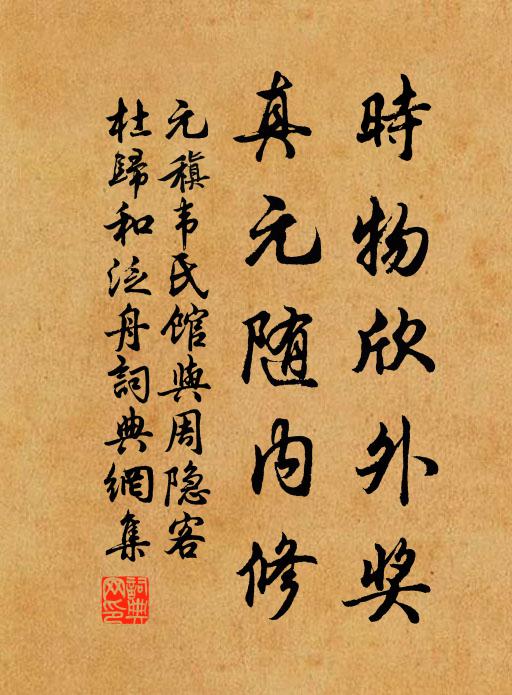 時物欣外奖
真元随内修
元稹韦氏館與周隐客
杜歸和泛舟詞典網集
詞典
网印